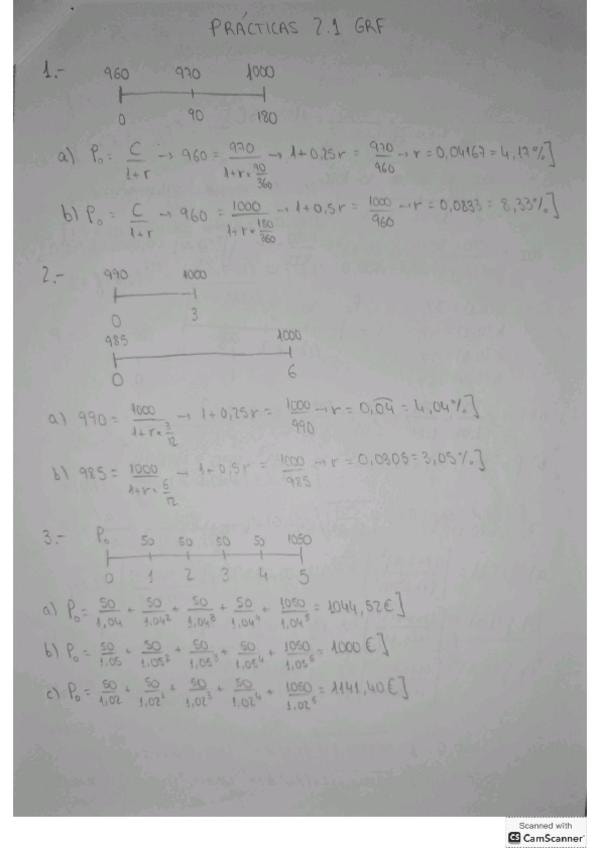 PRÁCTICAS 2.1 GRF
1.- 960 970 1000
0 90 180
a) P₀ = C/(1+r) → 960 = 970/(1+r·90/360) → 1+0,25r = 970/960 → r = 0,04167 = 4,17%]
b) P₀ = C/(1+r) → 960 = 1000/(1+r·180/360) → 1+0,5r = 1000/960 → r = 0,0833 = 8,33%]
2.- 990 1000
0 3
985 1000
0 6
a) 990 = 1000/(1+r·3/12) → 1+0,25r = 1000/990 → r = 0,04 = 4,04%]
b) 985 = 1000/(1+r·6/12) → 1+0,5r = 1000/985 → r = 0,0305 = 3,05%]
3.- P₀ 50 50 50 50 1050
0 1 2 3 4 5
a) P₀ = 50/1,04 + 50/1,04² + 50/1,04³ + 50/1,04⁴ + 1050/1,04⁵ = 1044,52€]
b) P₀ = 50/1,05 + 50/1,05² + 50/1,05³ + 50/1,05⁴ + 1050/1,05⁵ = 1000€]
c) P₀ = 50/1,02 + 50/1,02² + 50/1,02³ + 50/1,02⁴ + 1050/1,02⁵ = 1141,40€]
Scanned with
CS CamScanner